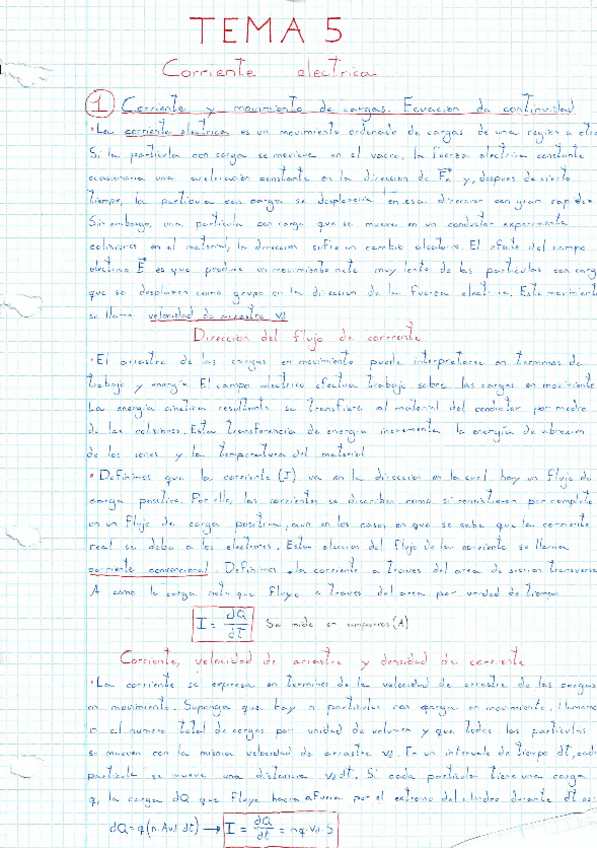 TEMA 5
Corriente electrica
1 Corriente y movimiento de cargas. Ecuacion de continuidad
• La corriente electrica es un movimiento ordenado de cargas de una region a otra
Si la particula con carga se moviera en el vacio, la fuerza electrica constante
ocasionaria una aceleracion constante en la direccion de F y, despues de cierto
tiempo, la particula con carga se desplazaria en esa direccion con gran rapidez.
Sin embargo, una particula con carga que se mueve en un conductor experimenta
colisiones en el material, la direccion sufre un cambio aleatorio. El efecto del campo
electrico E es que produce un movimiento neto muy lento de las particulas con carga
que se desplazan como grupo en la direccion de la fuerza electrica. Este movimiento
se llama velocidad de arrastre vd
Direccion del flujo de corriente
• El arrastre de las cargas en movimiento puede interpretarse en terminos de
trabajo y energia. El campo electrico efectua trabajo sobre las cargas en movimiento.
La energia cinetica resultante se transfiere al material del conductor por medio
de las colisiones. Esta transferencia de energia incrementa la energia de vibracion
de los iones y la temperatura del material
• Definimos que la corriente (I) va en la direccion en la cual hay un flujo de
carga positiva. Por ello, las corrientes se describen como si consistieran por completo
en un flujo de carga positiva, aun en los casos en que se sabe que la corriente
real se debe a los electrones. Esta eleccion del flujo de la corriente se llama
corriente convencional. Definimos la corriente a traves del area de seccion transversal
A como la carga neta que fluye a traves del area por unidad de tiempo
I = dQ/dt Se mide en amperios (A)
Corriente, velocidad de arrastre y densidad de corriente
• La corriente se expresa en terminos de la velocidad de arrastre de las cargas
en movimiento. Suponga que hay n particulas con carga en movimiento, llamamos
n al numero total de cargas por unidad de volumen y que todas las particulas
se mueven con la misma velocidad de arrastre vd. En un intervalo de tiempo dt, cada
particula se mueve una distancia vd dt. Si cada particula tiene una carga
q, la carga dQ que fluye hacia afuera por el extremo del cilindro durante dt es:
dQ = q(n·Avd dt) → I = dQ/dt = nq·vd·S